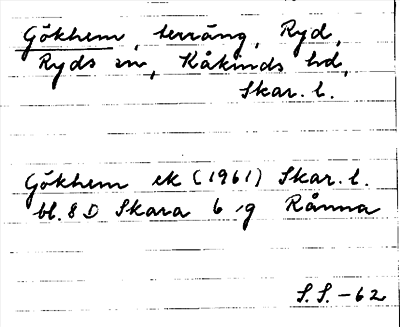 Gökhem, terräng, Ryd,
Ryds sn, Kåkinds hd,
Skar. l.
Gökhem ek (1961) Skar. l.
bl. 8 D Skara 6 g Rånna
S.S. -62